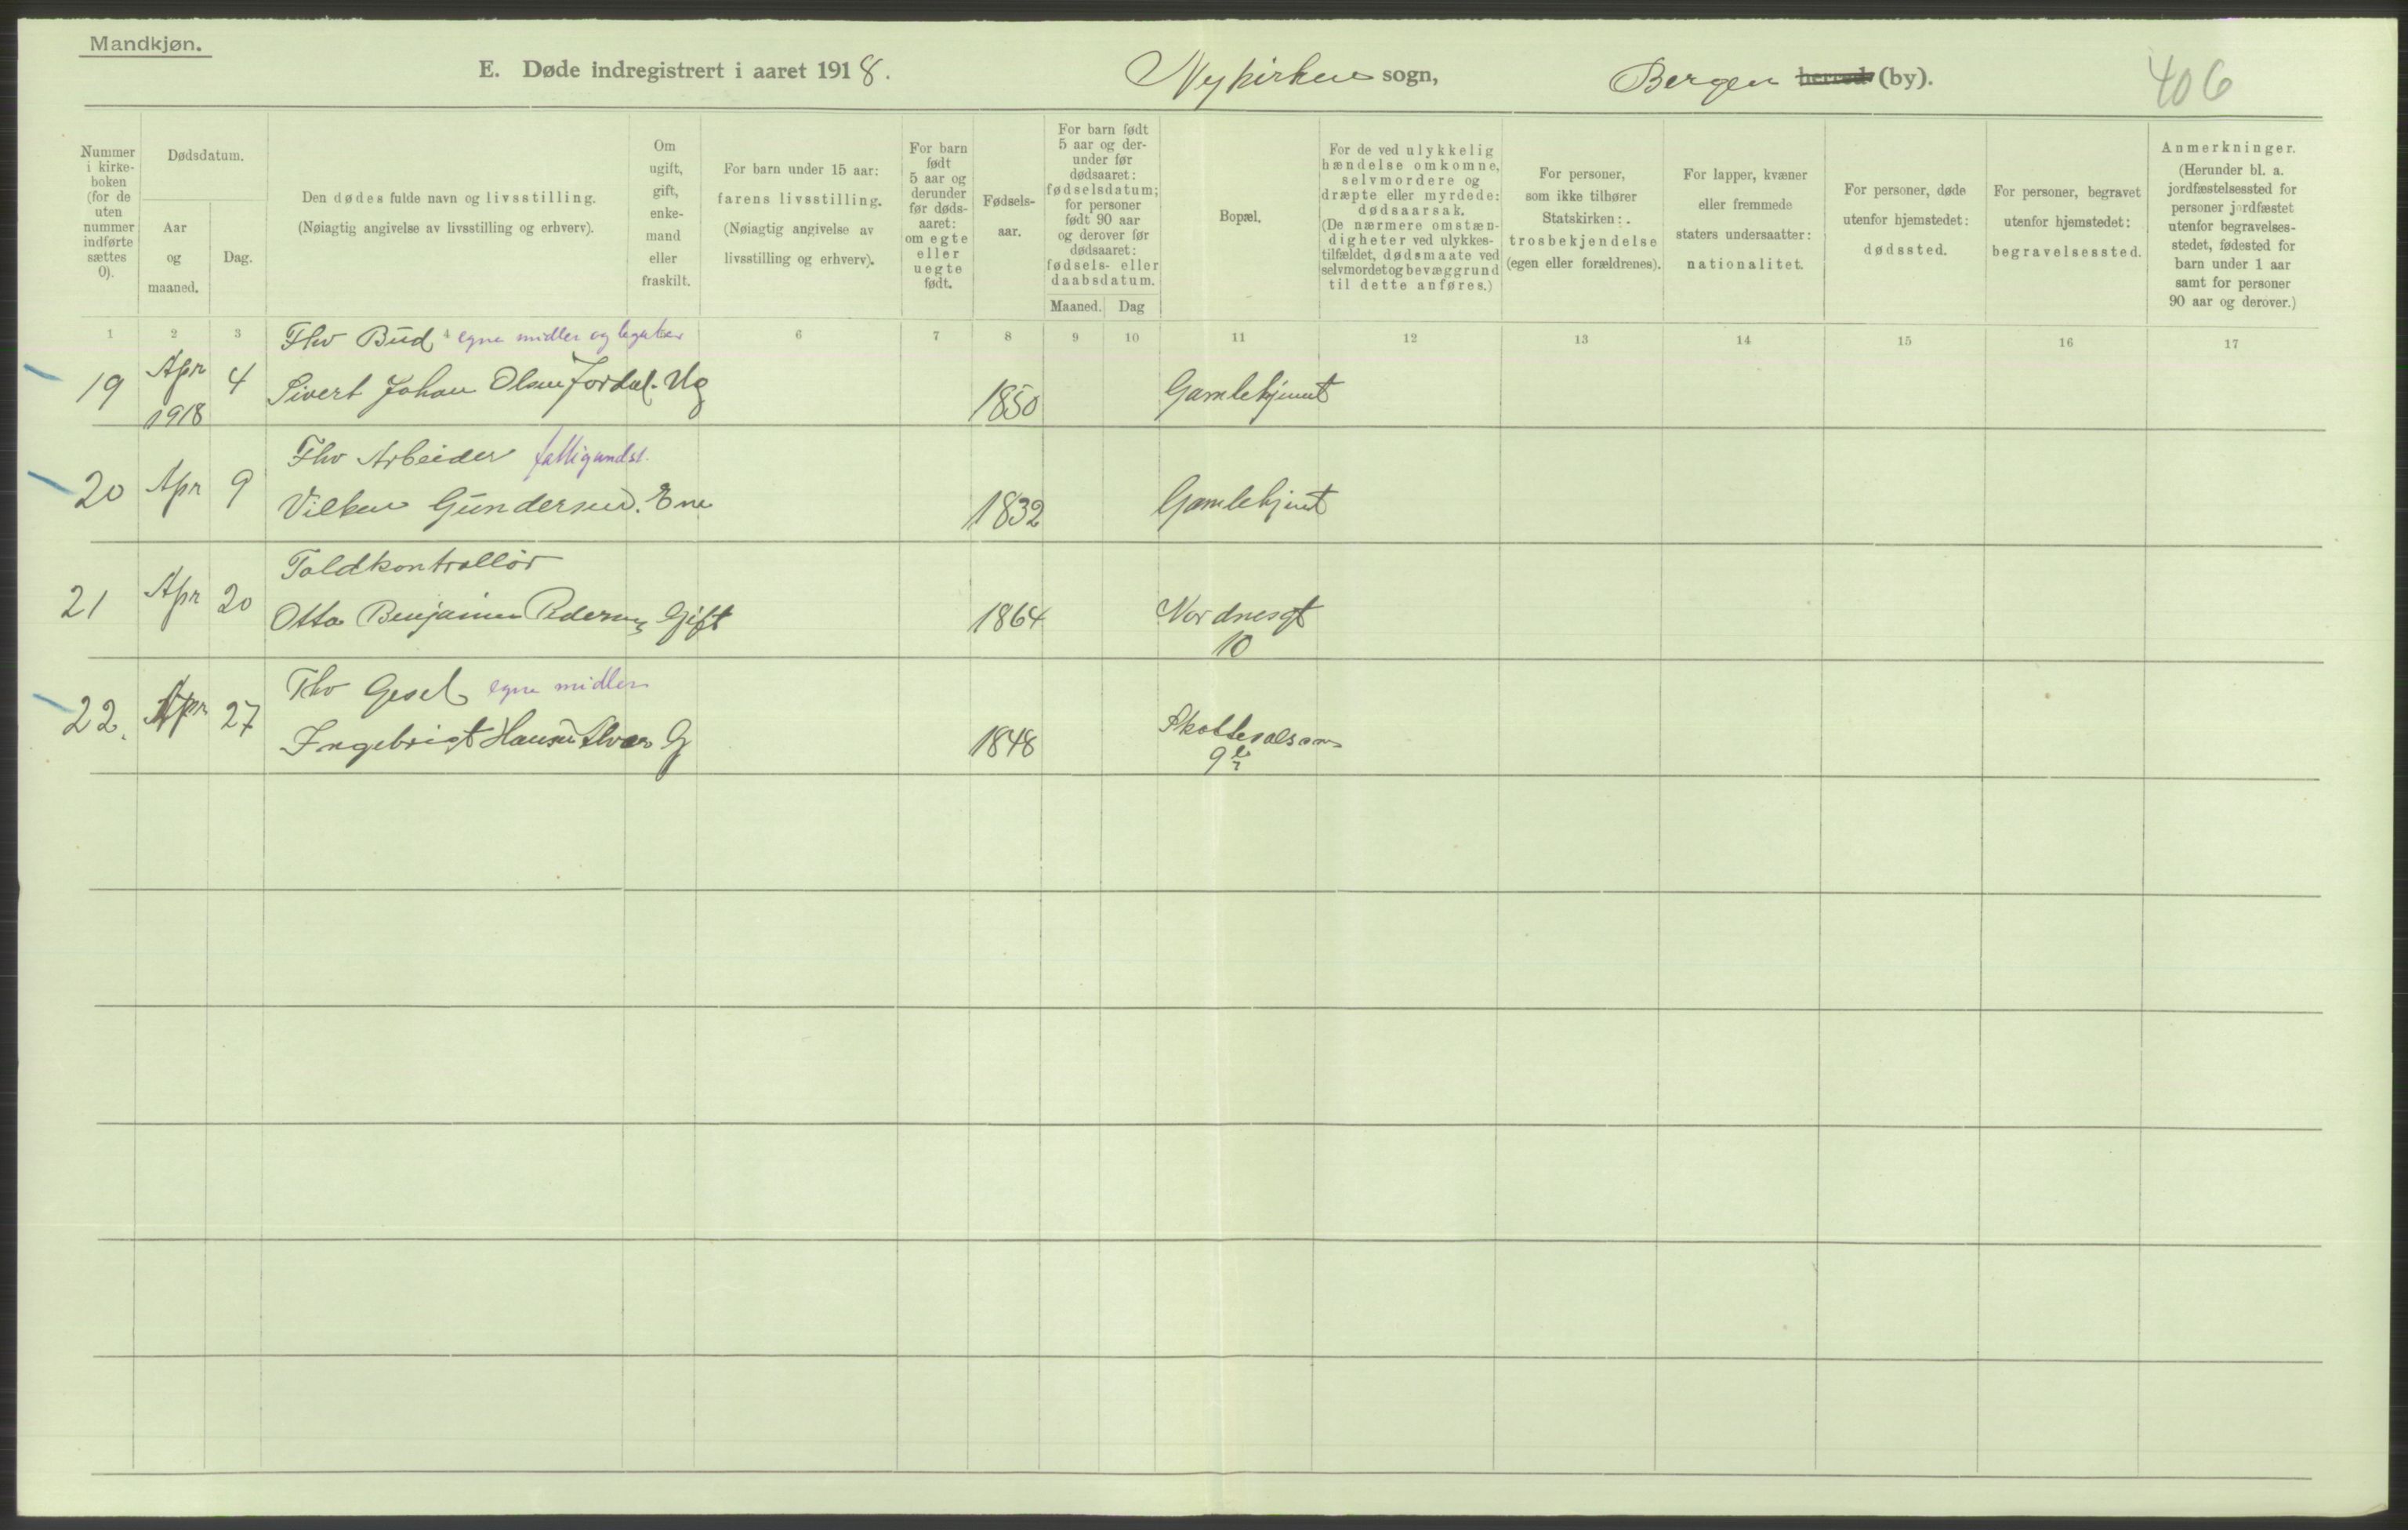 Mandkjøn.
E. Døde indregistrert i aaret 1918. Nykirken sogn, Bergen herred (by). 406
Nummer i kirke-boken (for de uten nummer indførte sættes 0).
Dødsdatum.
Aar og maaned.
Dag.
Den dødes fulde navn og livsstilling.
(Nøiagtig angivelse av livsstilling og erhverv).
Om ugift, gift, enke-mand eller fraskilt.
For barn under 15 aar: farens livsstilling.
(Nøiagtig angivelse av livsstilling og erhverv).
For barn født 5 aar og derunder før døds-aaret: om egte eller uegte født.
Fødsels-aar.
For barn født 5 aar og der-under før dødsaaret: fødselsdatum; for personer født 90 aar og derover før dødsaaret: fødsels- eller daabsdatum.
Maaned. Dag
Bopæl.
For de ved ulykkelig hændelse omkomne, selvmordere og dræpte eller myrdede: dødsaarsak.
(De nærmere omstæn-digheter ved ulykkes-tilfældet, dødsmaate ved selvmordet og bevæggrund til dette anføres.)
For personer, som ikke tilhører Statskirken: trosbekjendelse (egen eller forældrenes).
For lapper, kvæner eller fremmede staters undersaatter: nationalitet.
For personer, døde utenfor hjemstedet: dødssted.
For personer, begravet utenfor hjemstedet: begravelsessted.
Anmerkninger.
(Herunder bl. a. jordfæstelsessted for personer jordfæstet utenfor begravelses-stedet, fødested for barn under 1 aar samt for personer 90 aar og derover.)
1 2 3 6 7 8 9 10 11 12 13 14 15 16 17
Fhv Bud egne midler og legater
19 Apr 1918 4 Sivert Johan Olsen Jordal. Ug 1850 Gamlehjemet
Fhv Arbeider fattigundst.
20 Apr 9 Vilken Gundersen. Enm 1832 Gamlehjemt
Toldkontrollør
21 Apr 20 Otto Benjamin Pedersen Gift 1864 Nordnesgt 10
Fhv Gesel egne midler
22. Apr 27 Ingebrigt Hansen G 1848 9